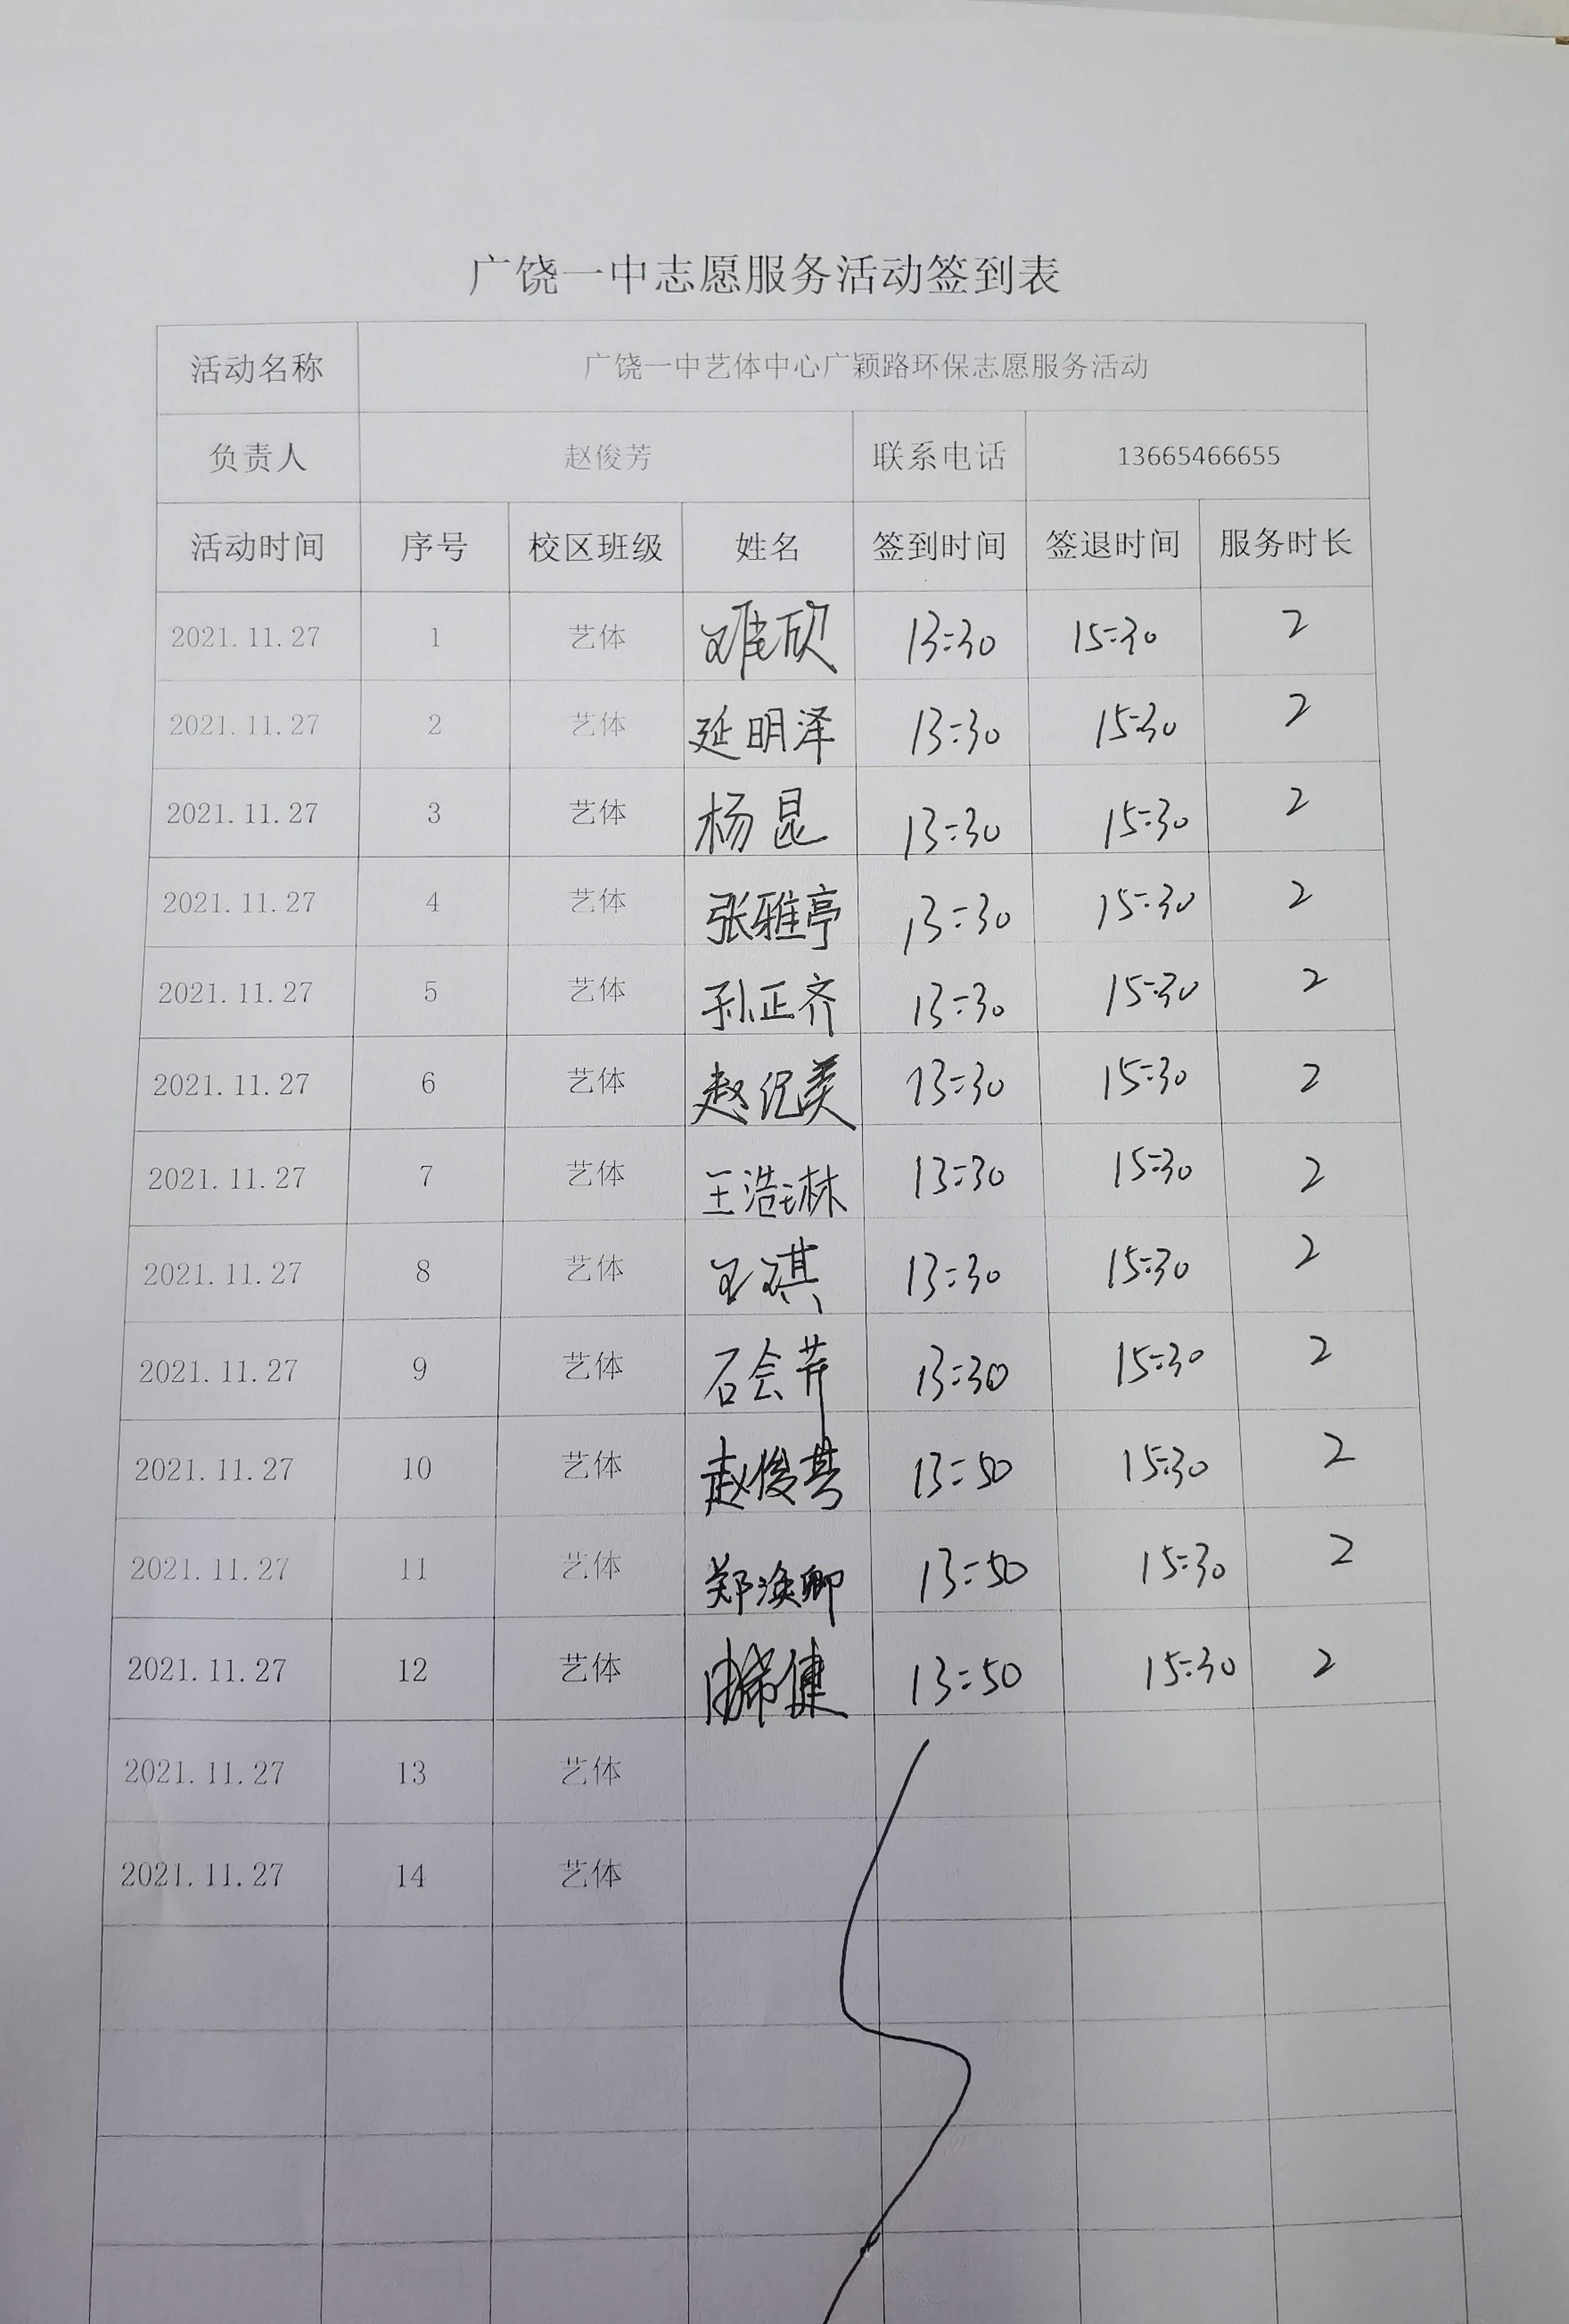 广饶一中志愿服务活动签到表
活动名称 广饶一中艺体中心广颖路环保志愿服务活动
负责人 赵俊芳 联系电话 13665466655
活动时间 序号 校区班级 姓名 签到时间 签退时间 服务时长
2021.11.27 1 艺体 13:30 15:30 2
2021.11.27 2 艺体 延明泽 13:30 15:30 2
2021.11.27 3 艺体 杨昆 13:30 15:30 2
2021.11.27 4 艺体 张雅亭 13:30 15:30 2
2021.11.27 5 艺体 孙正齐 13:30 15:30 2
2021.11.27 6 艺体 赵纪美 13:30 15:30 2
2021.11.27 7 艺体 王浩琳 13:30 15:30 2
2021.11.27 8 艺体 王琪 13:30 15:30 2
2021.11.27 9 艺体 石会芹 13:30 15:30 2
2021.11.27 10 艺体 赵俊芳 13:50 15:30 2
2021.11.27 11 艺体 郑焕卿 13:50 15:30 2
2021.11.27 12 艺体 13:50 15:30 2
2021.11.27 13 艺体
2021.11.27 14 艺体